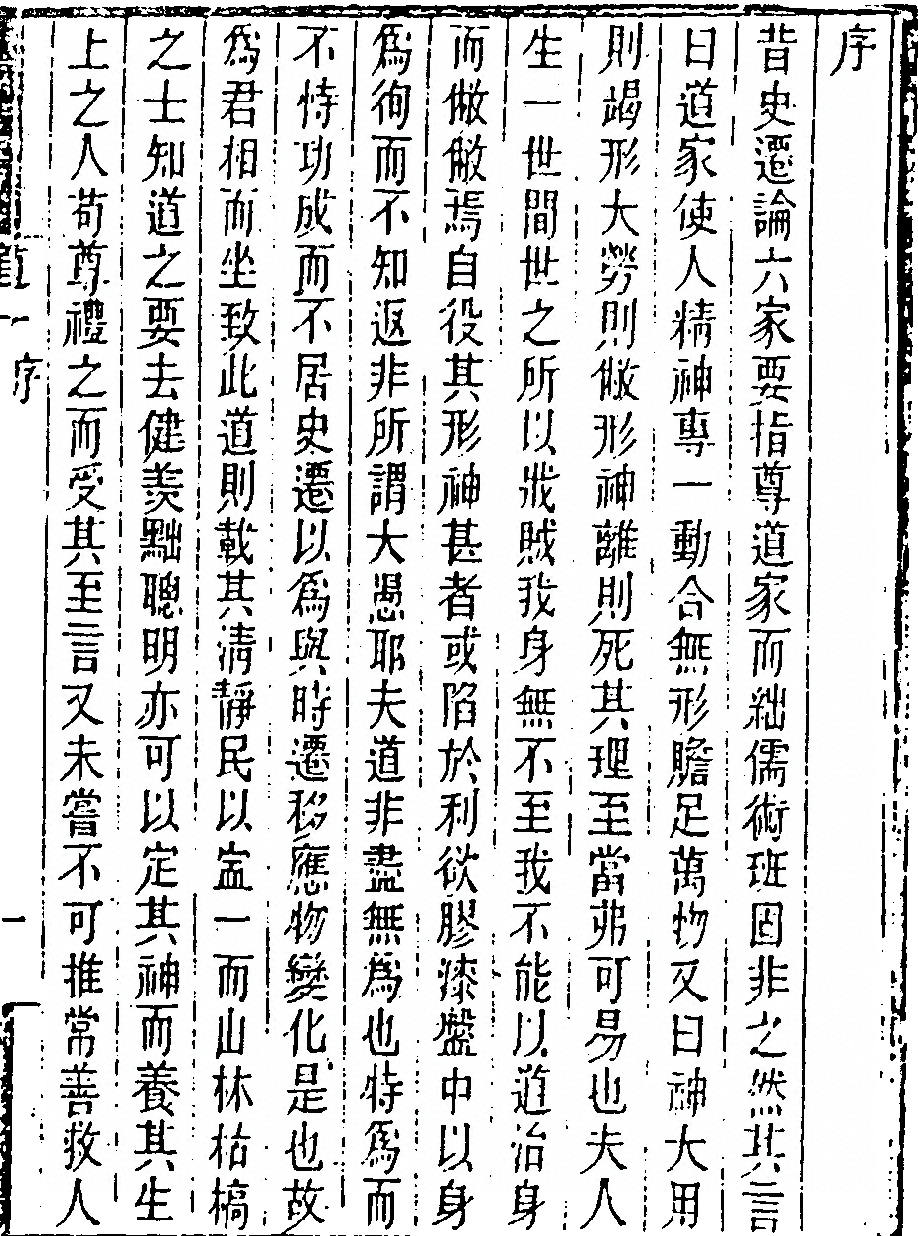 序
昔史遷論六家要指尊道家而絀儒術班固非之然其言
曰道家使人精神專一動合無形贍足萬物又曰神大用
則竭形大勞則倣形神離則死其理至當弗可易也夫人
生一世間世之所以戕賊我身無不至我不能以道治身
而僘僘焉自役其形神甚者或陷於利欲膠漆盤中以身
爲徇而不知返非所謂大愚耶夫道非盡無爲也特爲而
不恃功成而不居史遷以爲與時遷移應物變化是也故
爲君相而坐致此道則載其清靜民以寍一而山林枯槁
之士知道之要去健羨黜聰明亦可以定其神而養其生
上之人苟尊禮之而受其至言又未嘗不可推常善救人
序
一